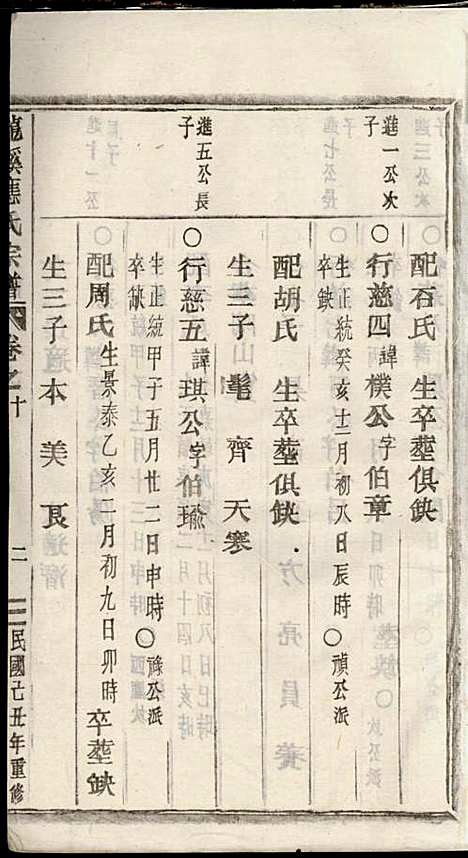 配石氏 生卒塟俱鈌
進一公次子
○行慈四諱樸公字伯章
生正統癸亥十二月初八日辰時○禎公派
卒鈌
配胡氏 生卒塟俱鈌
生三子 髦 齊 天寒
進五公長子
○行慈五諱琪公字伯瑜
生正統甲子五月廿二日申時○祿公派
卒鈌
配周氏 生景泰乙亥二月初九日卯時 卒塟鈌
生三子 本 美 艮
龍溪應氏宗譜 卷之十 二 民國己丑年重修